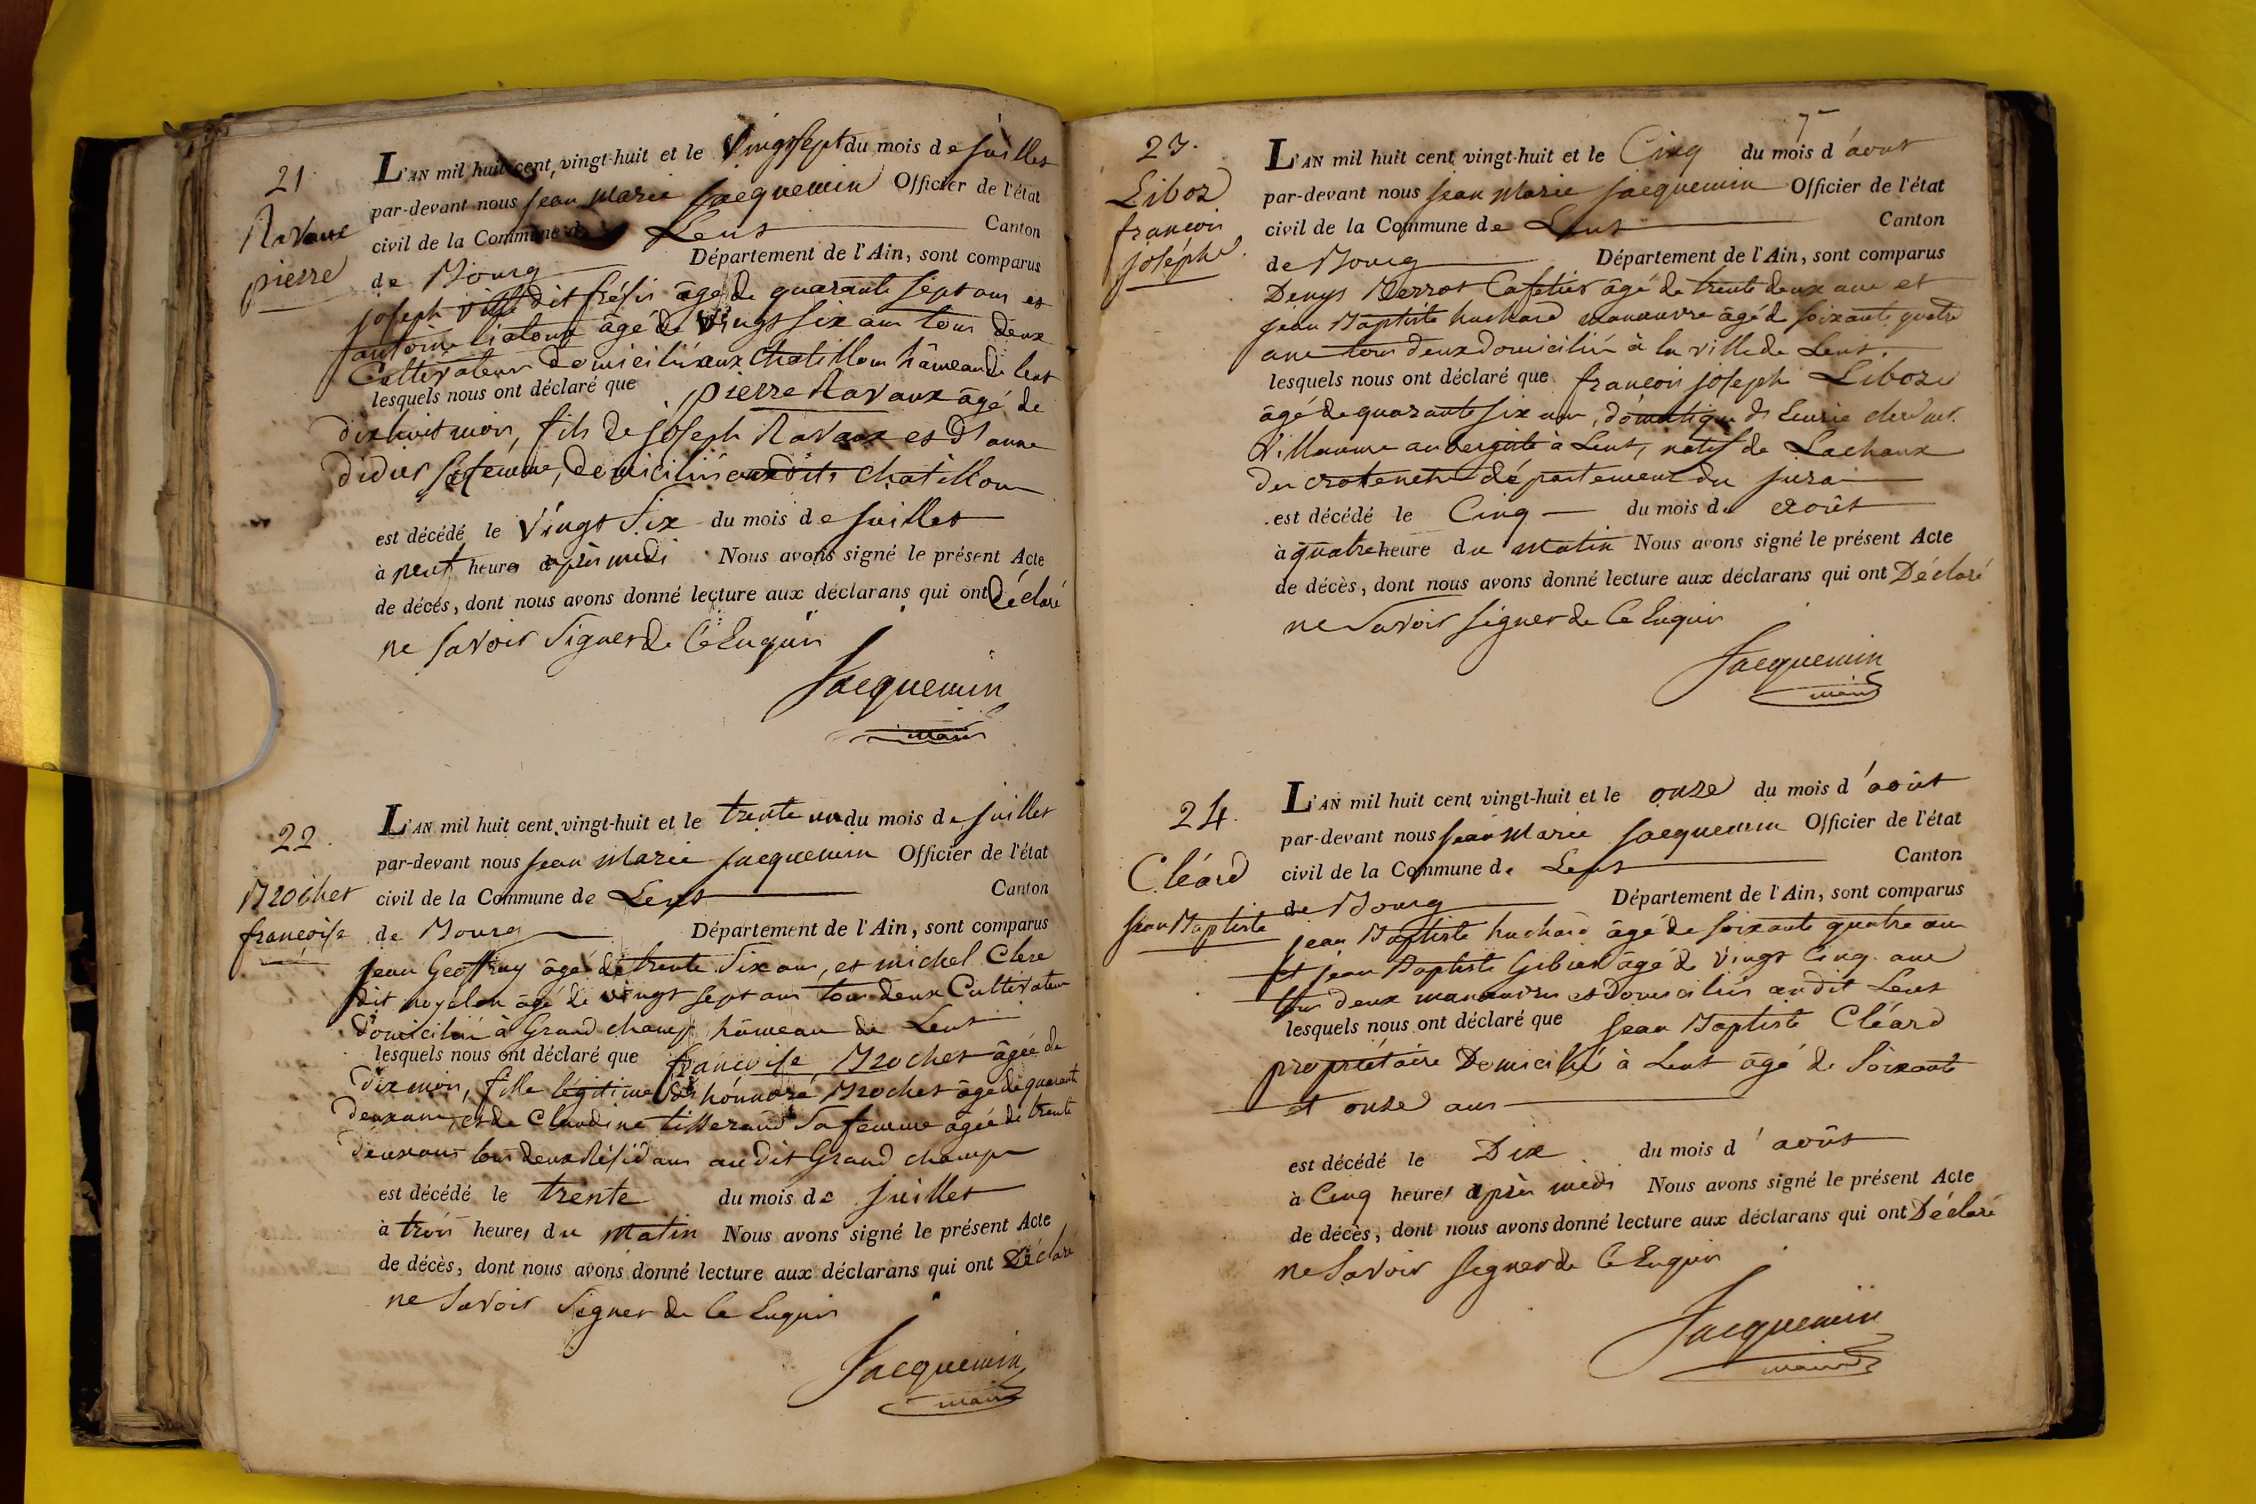 21
Ravaux
pierre
L'AN mil huit cent vingt-huit et le Vingt sept du mois de juillet
par-devant nous jean marie jacquemin Officier de l'état
civil de la Commune de Lent Canton
de Bourg Département de l'Ain, sont comparus
joseph dit frésir âgé de quarante sept ans et
antoine âgé de vingt six ans tous deux
Cultivateurs domiciliés aux Chatillon hâmeau de lent
lesquels nous ont déclaré que pierre Ravaux âgé de
dix huit mois, fils de joseph Ravaux et d'anne
didier sa femme, domiciliés audits chatillon
est décédé le Vingt Six du mois de juillet
à neuf heures après midi Nous avons signé le présent Acte
de décès, dont nous avons donné lecture aux déclarans qui ont Déclaré
ne savoir Signer de Ce Enquis
Jacquemin
maire
22.
Brochet
francoise
L'AN mil huit cent vingt-huit et le trente un du mois de juillet
par-devant nous jean marie jacquemin Officier de l'état
civil de la Commune de Lent Canton
de Bourg Département de l'Ain, sont comparus
jean Geoffray âgé de trente Six ans, et michel Clerc
dit noyelon âgé de vingt sept ans tous deux Cultivateurs
domicilié à Grand champ hâmeau de Lent
lesquels nous ont déclaré que francoise Brochet âgée de
dix mois, fille légitime de honnoré Brochet âgé de quarante
deux ans, et de Claudine tisserand Sa femme agée de trente
deux ans tous deux Résidans audit Grand champ
est décédé le trente du mois de juillet
à trois heures du Matin Nous avons signé le présent Acte
de décès, dont nous avons donné lecture aux déclarans qui ont Déclaré
ne Savoir Signer de Ce Enquis
Jacquemin
maire
23.
Liboz
francois
joseph
L'AN mil huit cent vingt-huit et le Cinq du mois d'aout
par-devant nous jean Marie jacquemin Officier de l'état
civil de la Commune de Lent Canton
de Bourg Département de l'Ain, sont comparus
Denys Perrot Cafetier âgé de trente deux ans et
jean Baptiste huchard manœuvre âgé de soixante quatre
ans tous deux Domiciliés à la ville de Lent.
lesquels nous ont déclaré que francois joseph Liboz
âgé de quarante six ans, domestique de
Villaume aubergiste à Lent, natif de Lachaux
du crotenet département du jura
est décédé le Cinq du mois d' Août
à quatre heure du Matin Nous avons signé le présent Acte
de décès, dont nous avons donné lecture aux déclarans qui ont Déclaré
ne Savoir signer de Ce Enquis
Jacquemin
maire
24.
Cléard
jean Baptiste
L'AN mil huit cent vingt-huit et le onze du mois d'août
par-devant nous jean Marie jacquemin Officier de l'état
civil de la Commune de Lent Canton
de Bourg Département de l'Ain, sont comparus
jean Baptiste huchard âgé de soixante quatre ans
et jean Baptiste Gibier âgé de vingt Cinq ans
tous deux manœuvres et Domiciliés audit Lent
lesquels nous ont déclaré que jean Baptiste Cléard
propriétaire Domicilié à Lent âgé de Soixante
et onze ans
est décédé le Dix du mois d'août
à Cinq heures après midi Nous avons signé le présent Acte
de décès, dont nous avons donné lecture aux déclarans qui ont Déclaré
ne Savoir signer de Ce Enquis
Jacquemin
maire